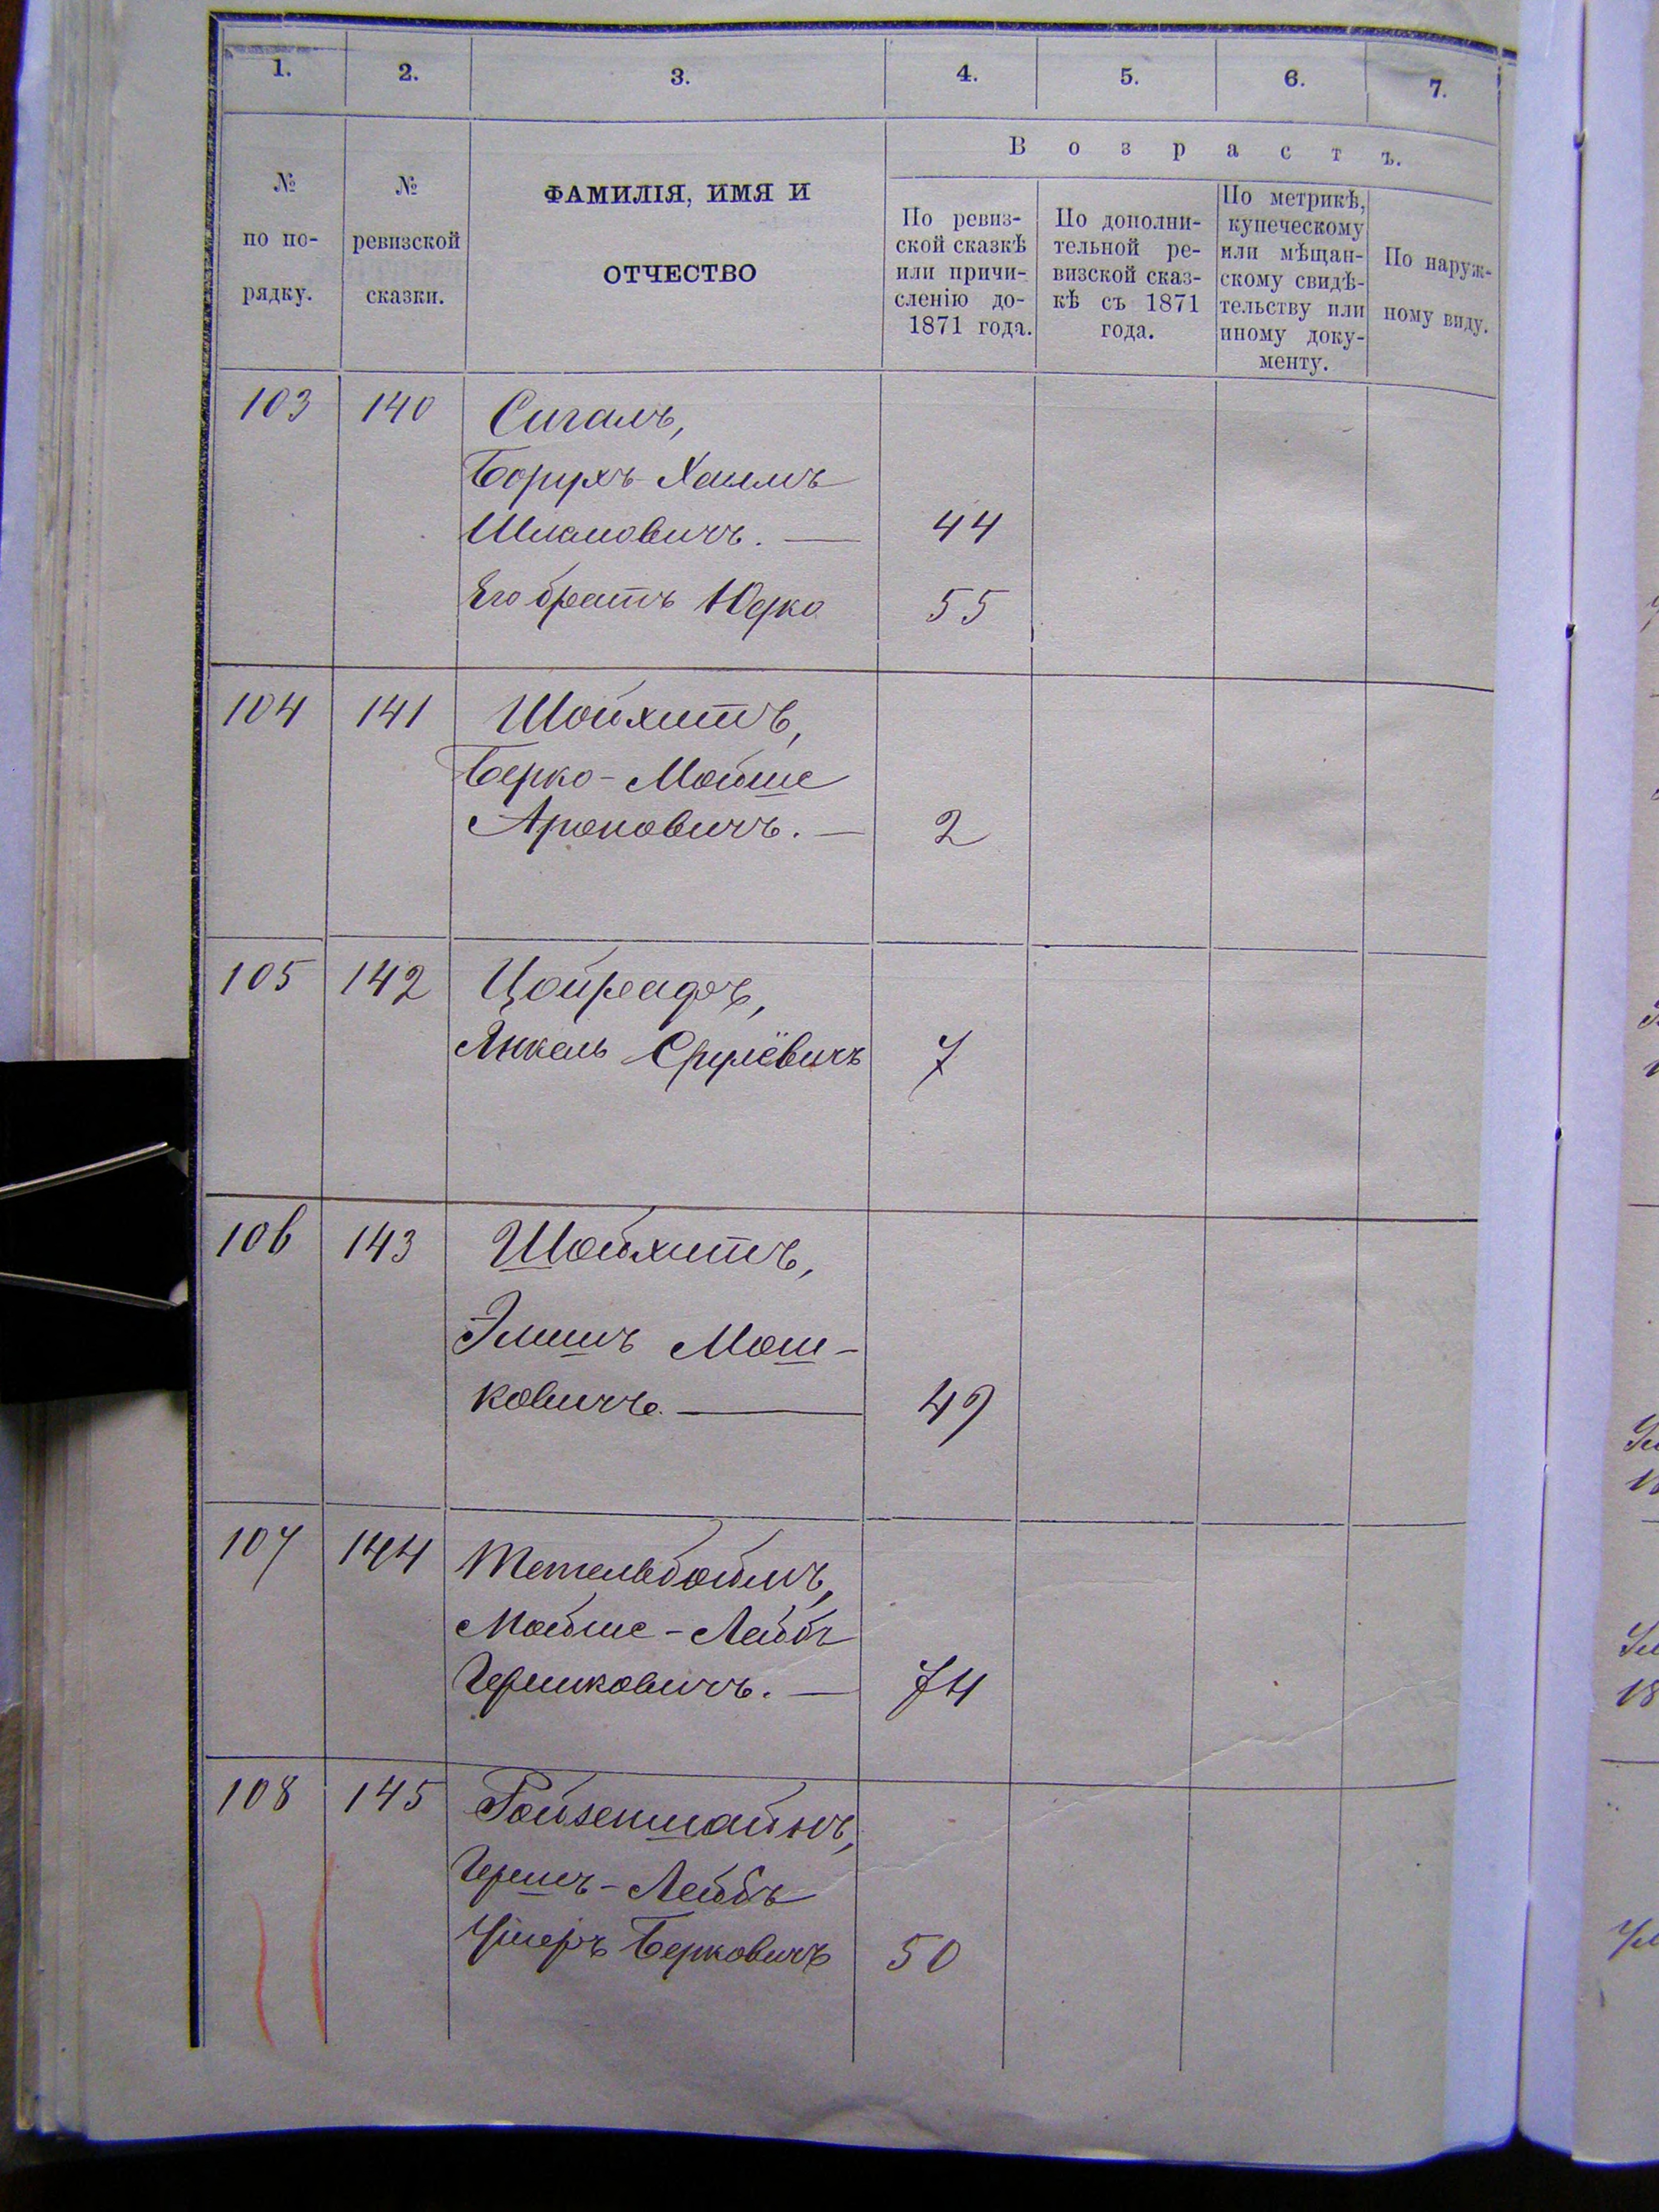 1. 2. 3. 4. 5. 6. 7.
№ по по-рядку.
№ ревизской сказки.
ФАМИЛІЯ, ИМЯ И
ОТЧЕСТВО
Возрастъ.
По ревиз-
ской сказкѣ
или причи-
сленію до-
1871 года.
По дополни-
тельной ре-
визской сказ-
кѣ съ 1871
года.
По метрикѣ,
купеческому
или мѣщан-
скому свидѣ-
тельству или
иному доку-
менту.
По наруж-
ному виду.
103 140 Сигалъ,
Борухъ-Хаимъ
Шламовичъ. — 44
Его братъ Юдко 55
104 141 Шойхитъ,
Берко-Мойше
Ароновичъ. — 2
105 142 Цойрефъ,
Янкель Срулёвичъ 7
106 143 Шойхитъ,
Элишъ Мош-
ковичъ. — 49
107 144 Тетельбоймъ,
Мойше-Лейбъ
Гершковичъ. — 74
108 145 Ройзеншайнъ,
Гершъ-Лейбъ
Ушеръ Берковичъ 50